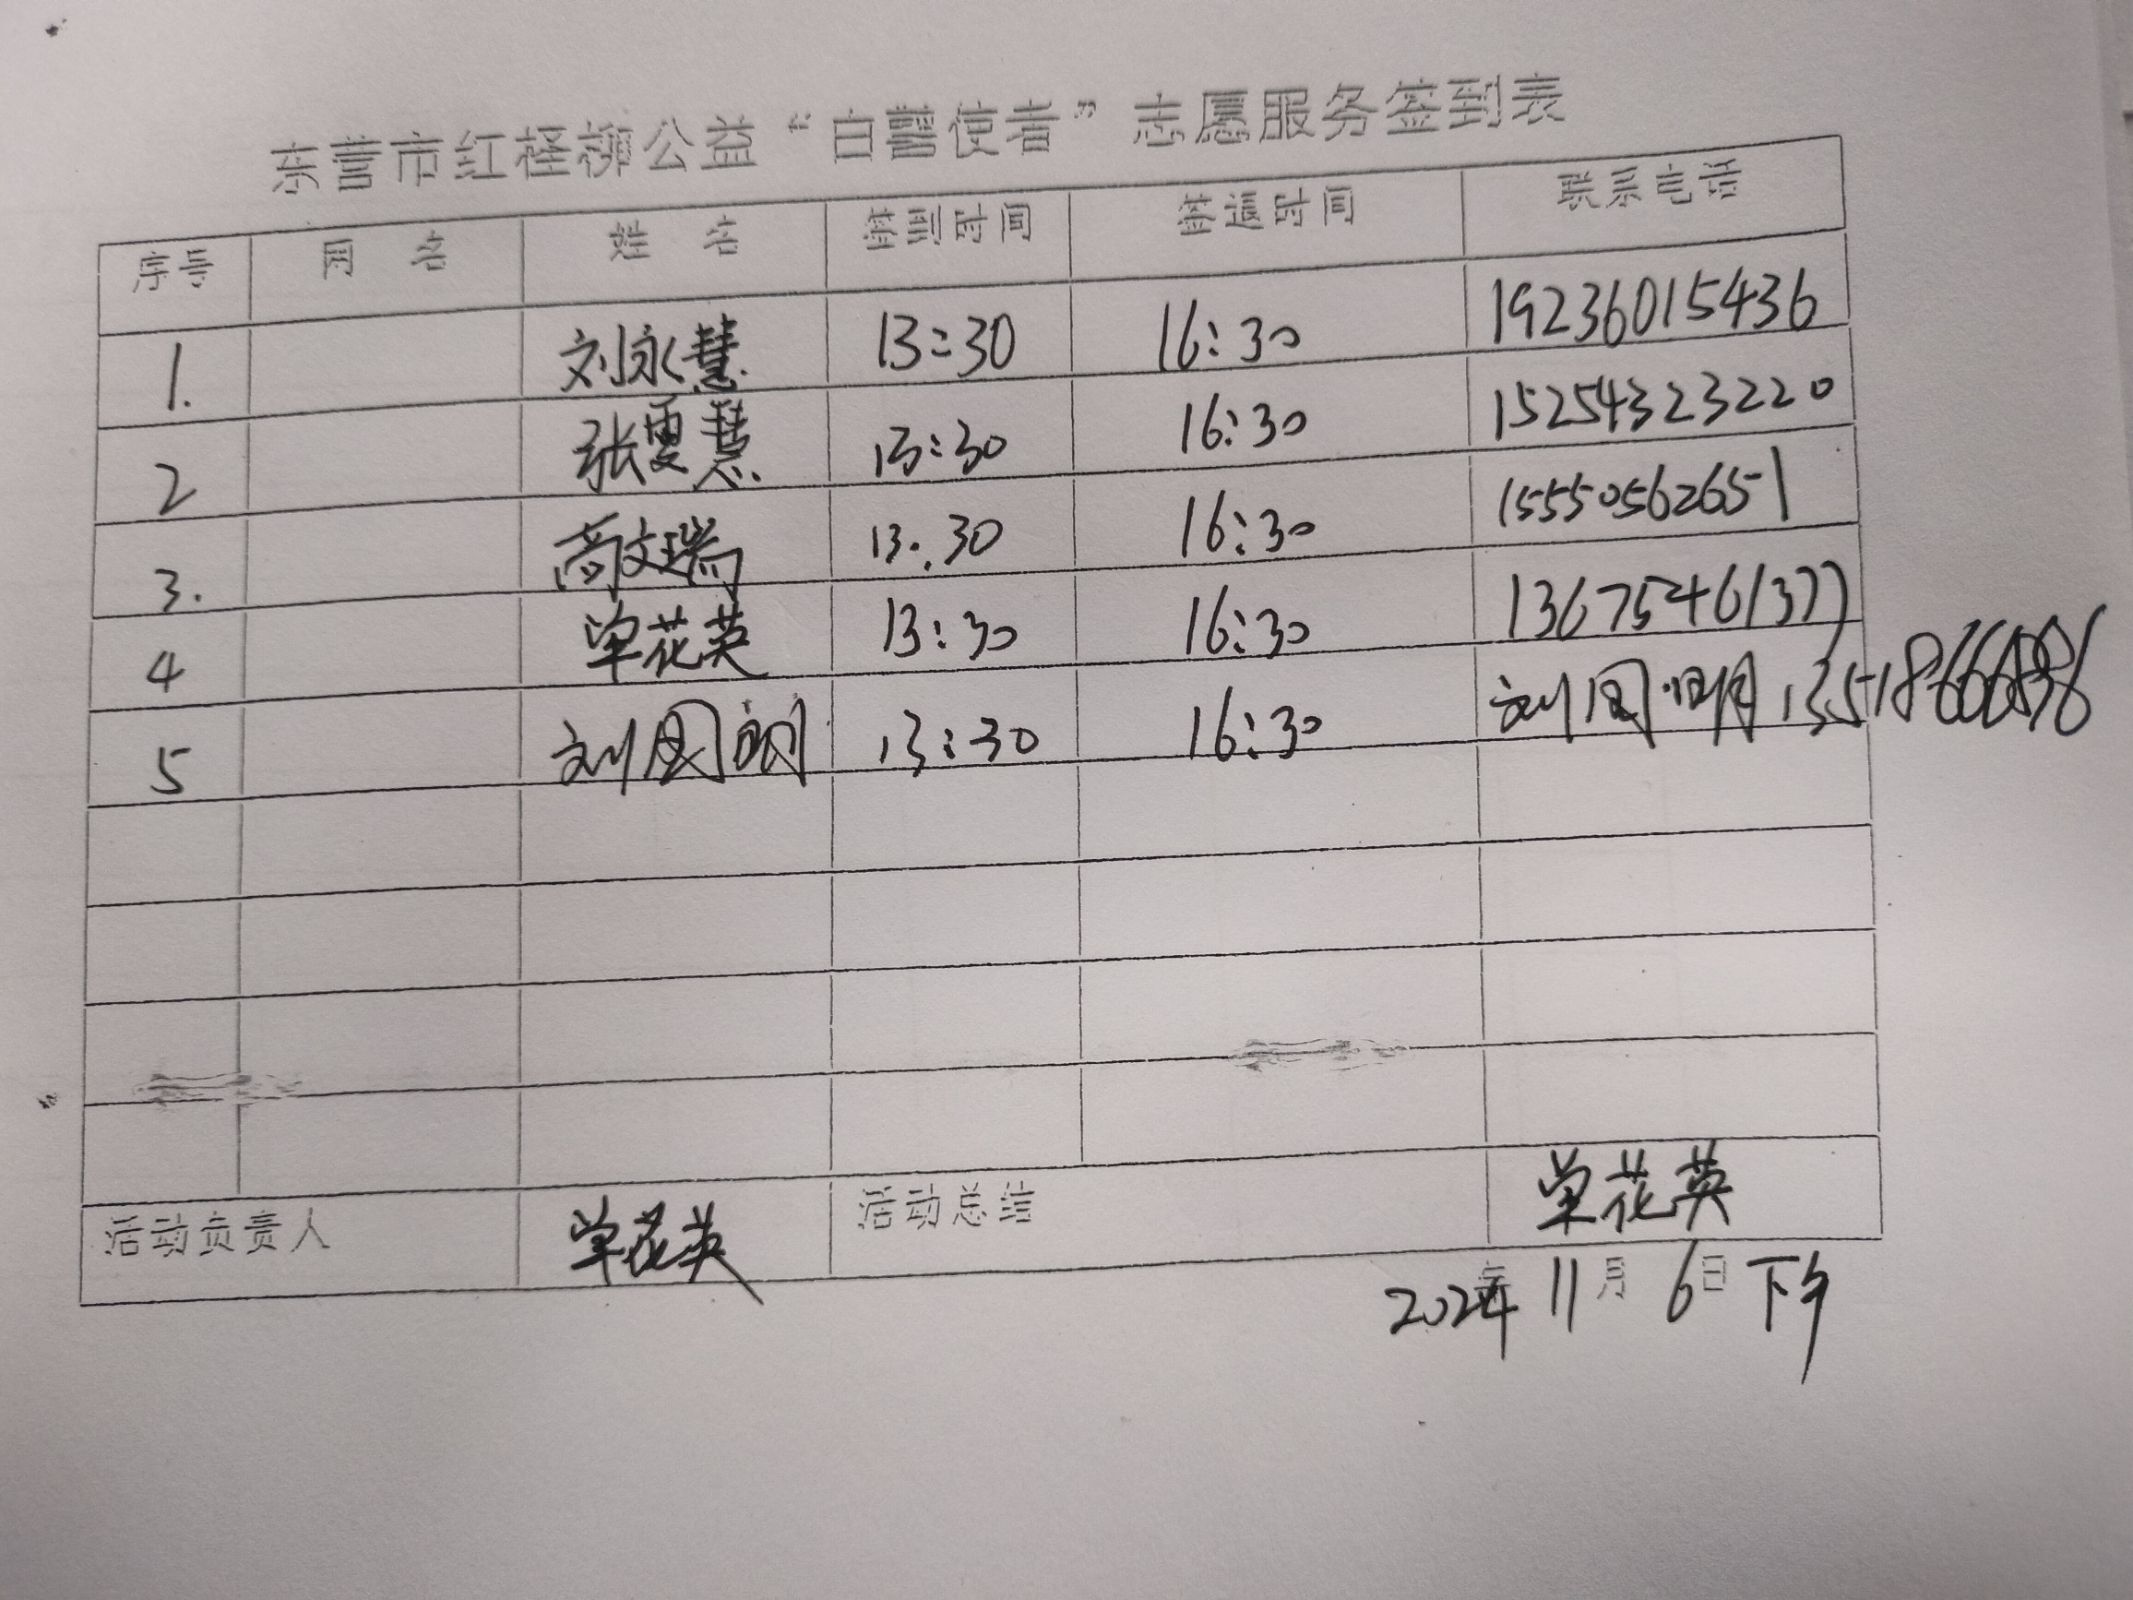 东营市红柽柳公益“白鹭使者”志愿服务签到表
序号 网名 姓名 签到时间 签退时间 联系电话
1. 刘永慧 13:30 16:30 19236015436
2 张雯慧 13:30 16:30 15254323220
3. 高文瑞 13:30 16:30 15550562651
4 单花英 13:30 16:30 13675461377
5 刘国朗 13:30 16:30 刘国明
活动负责人 单花英 活动总结 单花英
2024年 11月 6日 下午